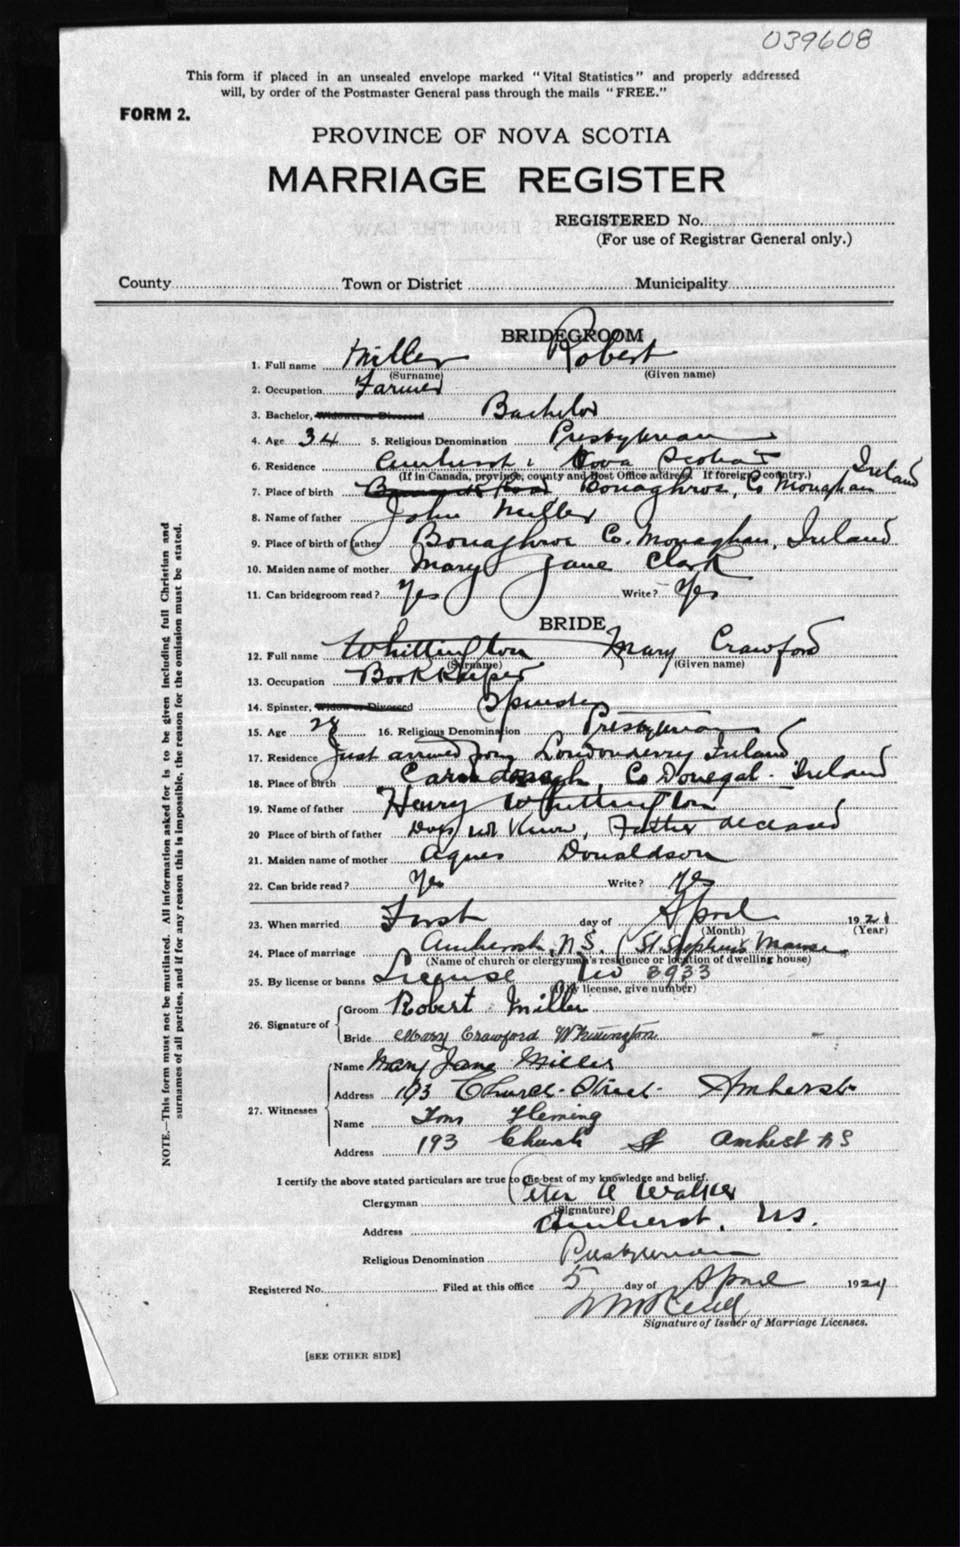 039608
This form if placed in an unsealed envelope marked "Vital Statistics" and properly addressed
will, by order of the Postmaster General pass through the mails "FREE."
FORM 2.
PROVINCE OF NOVA SCOTIA
MARRIAGE REGISTER
REGISTERED No.
(For use of Registrar General only.)
County Town or District Municipality
BRIDEGROOM
1. Full name Miller Robert
(Surname) (Given name)
2. Occupation Farmer
3. Bachelor, Widower or Divorced Bachelor
4. Age 34 5. Religious Denomination Presbyterian
6. Residence Amherst, Nova Scotia
(If in Canada, province, county and Post Office address. If foreign, country.)
7. Place of birth Co Monaghan Ireland
8. Name of father John Miller
9. Place of birth of father Co. Monaghan, Ireland
10. Maiden name of mother Mary Jane Clark
11. Can bridegroom read? Yes Write? Yes
BRIDE
12. Full name Whittington Mary Crawford
(Surname) (Given name)
13. Occupation Book Keeper
14. Spinster, Widow or Divorced Spinster
15. Age 28 16. Religious Denomination Presbyterian
17. Residence Just arrived from Londonderry Ireland
18. Place of birth Co Donegal. Ireland
19. Name of father Henry Whittington
20 Place of birth of father Does not Know, Father deceased
21. Maiden name of mother Agnes Donaldson
22. Can bride read? Yes Write? Yes
23. When married First day of April 192
(Month) (Year)
24. Place of marriage Amherst, N.S. (St. Stephen's Manse
(Name of church or clergyman's residence or location of dwelling house)
25. By license or banns License No 3933
(By license, give number)
26. Signature of Groom Robert Miller
Bride Mary Crawford Whittington
27. Witnesses Name Mary Jane Miller
Address 193 Church Street Amherst
Name Tom Fleming
Address 193 Church St Amhest N S
I certify the above stated particulars are true to the best of my knowledge and belief.
Clergyman Peter Walker
(Signature)
Address Amherst, N.S.
Religious Denomination Presbyterian
Registered No. Filed at this office 5 day of April 192
Signature of Issuer of Marriage Licenses.
[SEE OTHER SIDE]
NOTE.—This form must not be mutilated. All information asked for is to be given including full Christian and
surnames of all parties, and if for any reason this is impossible, the reason for the omission must be stated.